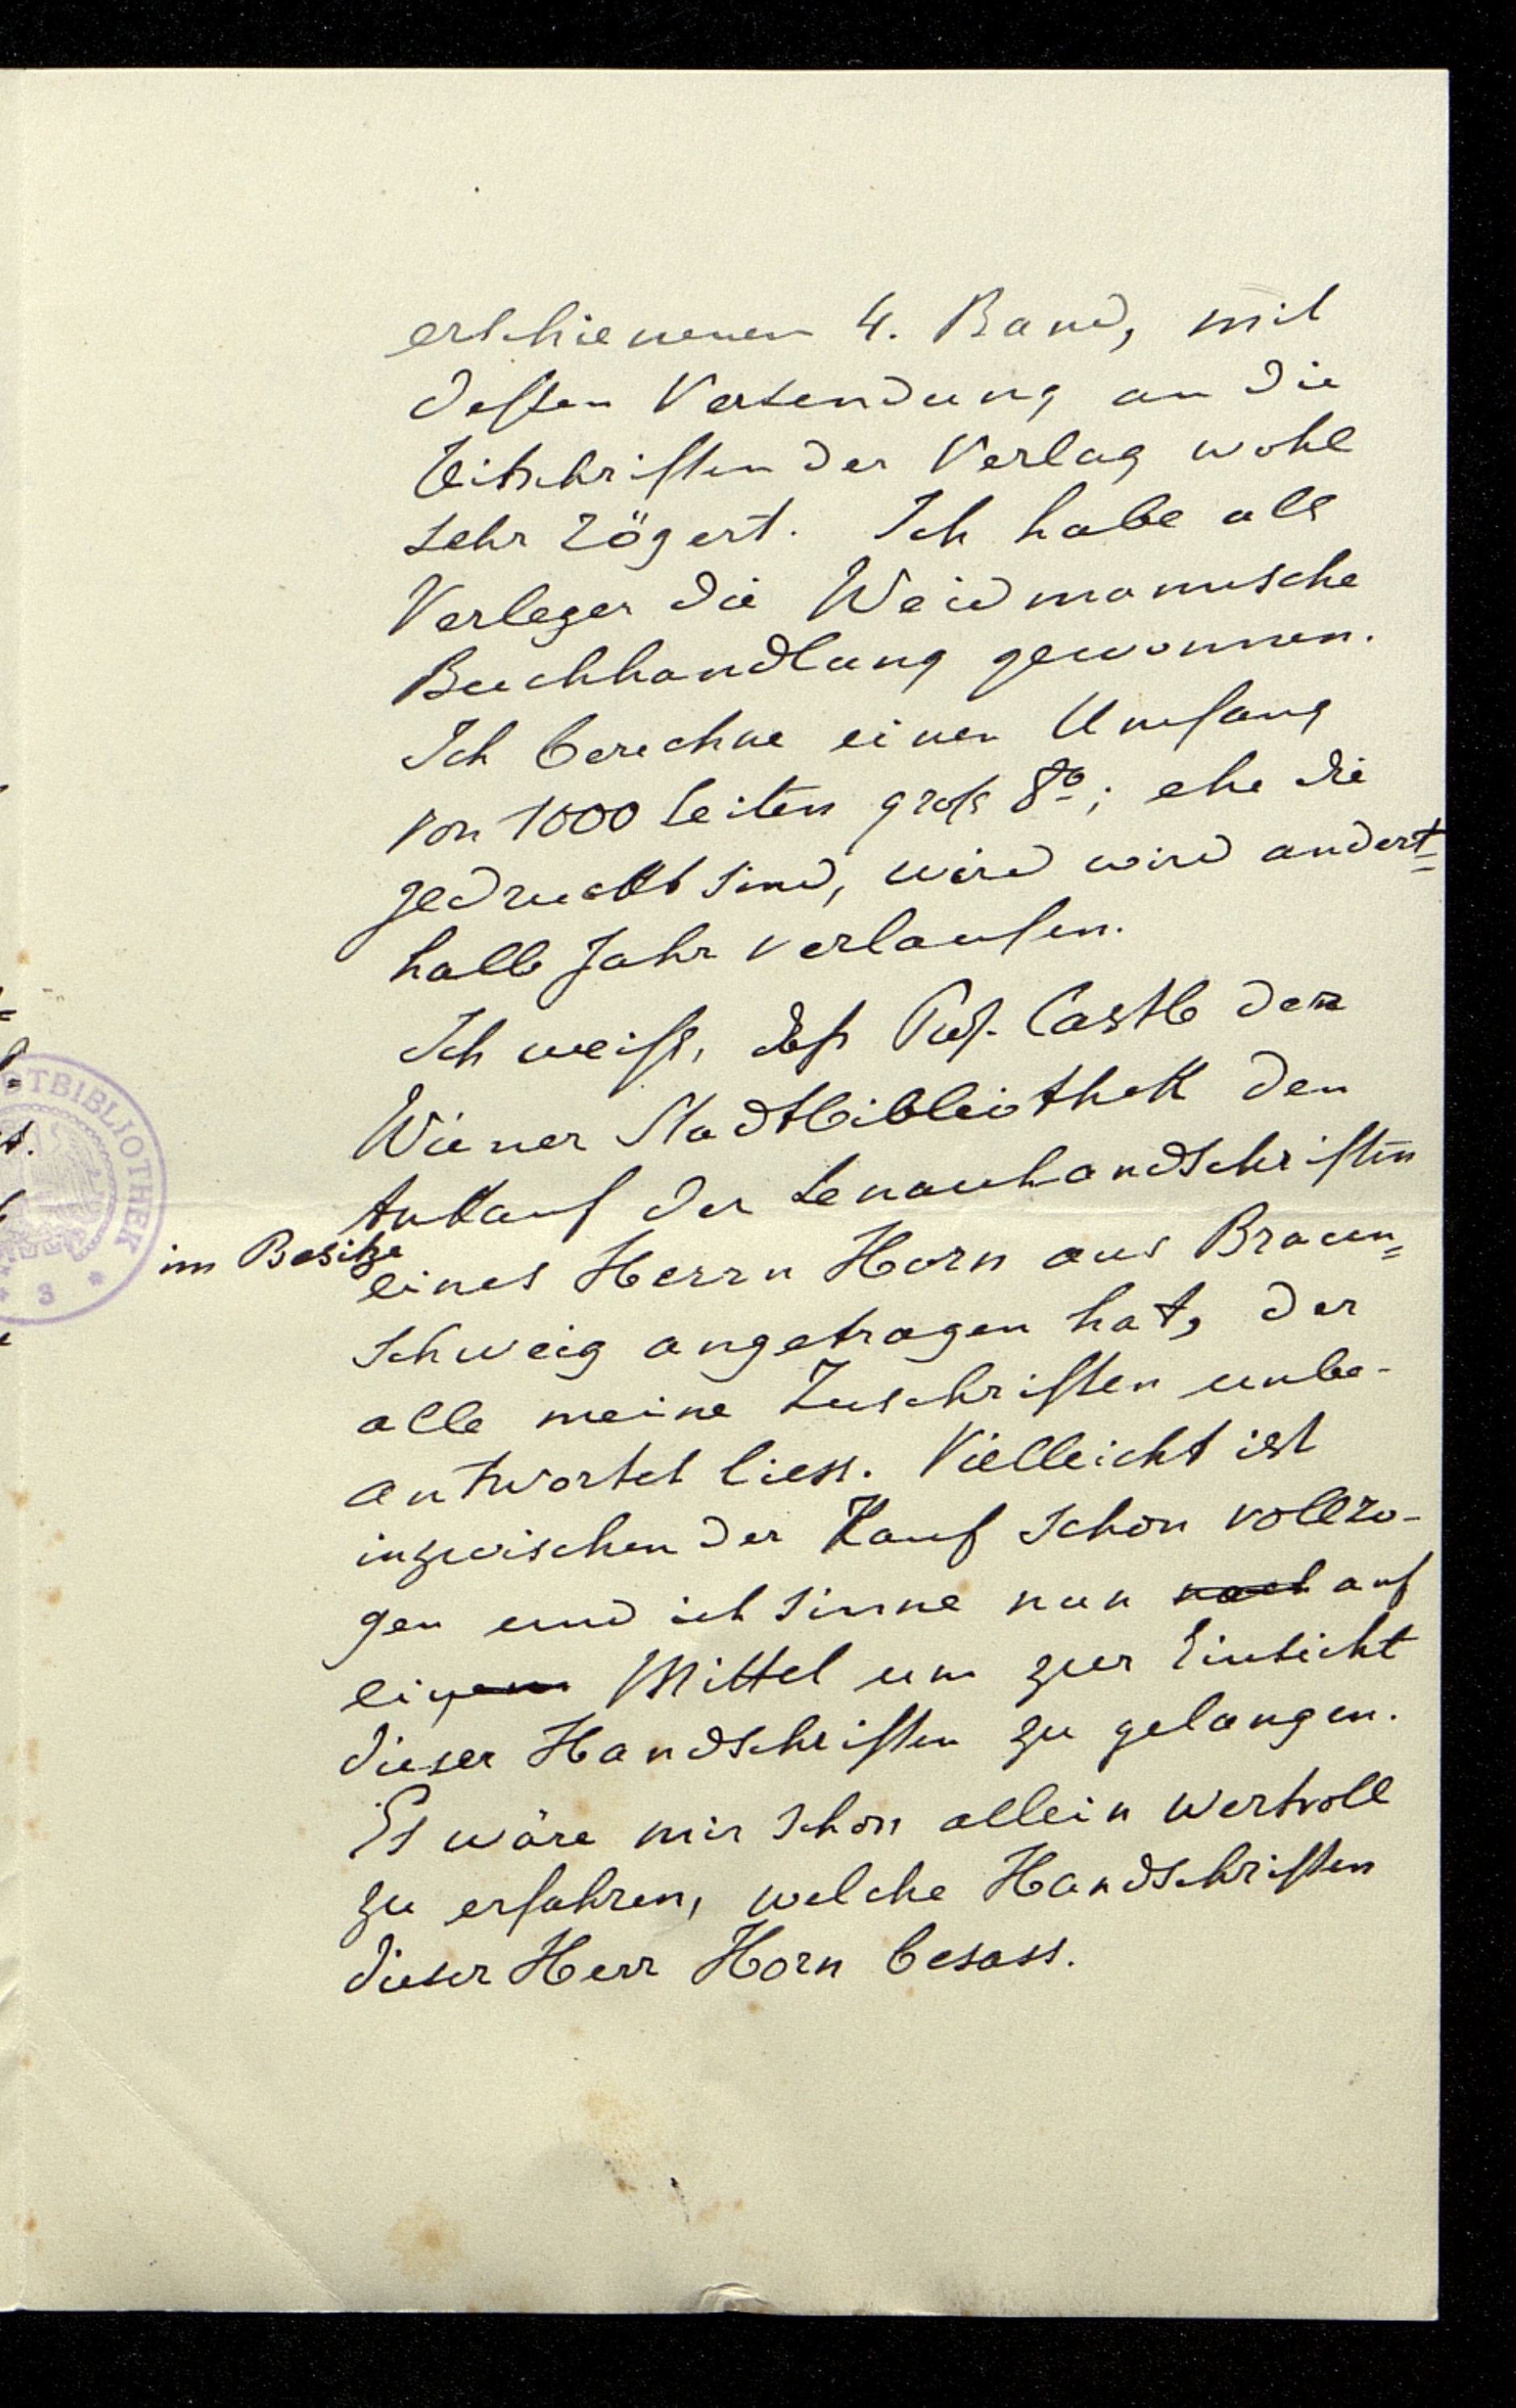 erschienenen 4. Band, mit
dessen Versendung an die
Zeitschriften der Verlag wohl
sehr zögert. Ich habe als
Verleger die Weidmannsche
Buchhandlung gewonnen.
Ich berechne einen Umfang
von 1000 Seiten groß 8o; ehe die
gedruckt sind, wird wird andert=
halb Jahr verlaufen.
Ich weiß, daß Prof. Castle der
Wiener Stadtbibliothek den
Ankauf der Lenauhandschriften
im Besitze
eines Herrn Horn aus Braun=
schweig angetragen hat, der
alle meine Zuschriften unbe-
antwortet liess. Vielleicht ist
inzwischen der Kauf schon vollzo-
gen und ich sinne nun noch auf
ein Mittel um zur Einsicht
dieser Handschriften zu gelangen.
Es wäre mir schon allein wertvoll
zu erfahren, welche Handschriften
dieser Herr Horn besass.
STBIBLIOTHEK
* 3 *